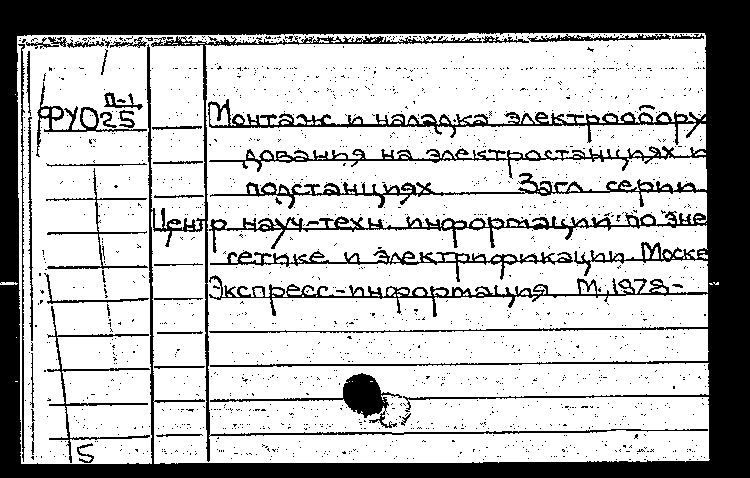 П-1.
ФУ025
Монтаж и наладка электрообору
дования на электростанциях и
подстанциях Загл. серии
Центр науч.-техн. информации по эне
гетике и электрификации Москв
Экспресс-информация. М., 1978-
5